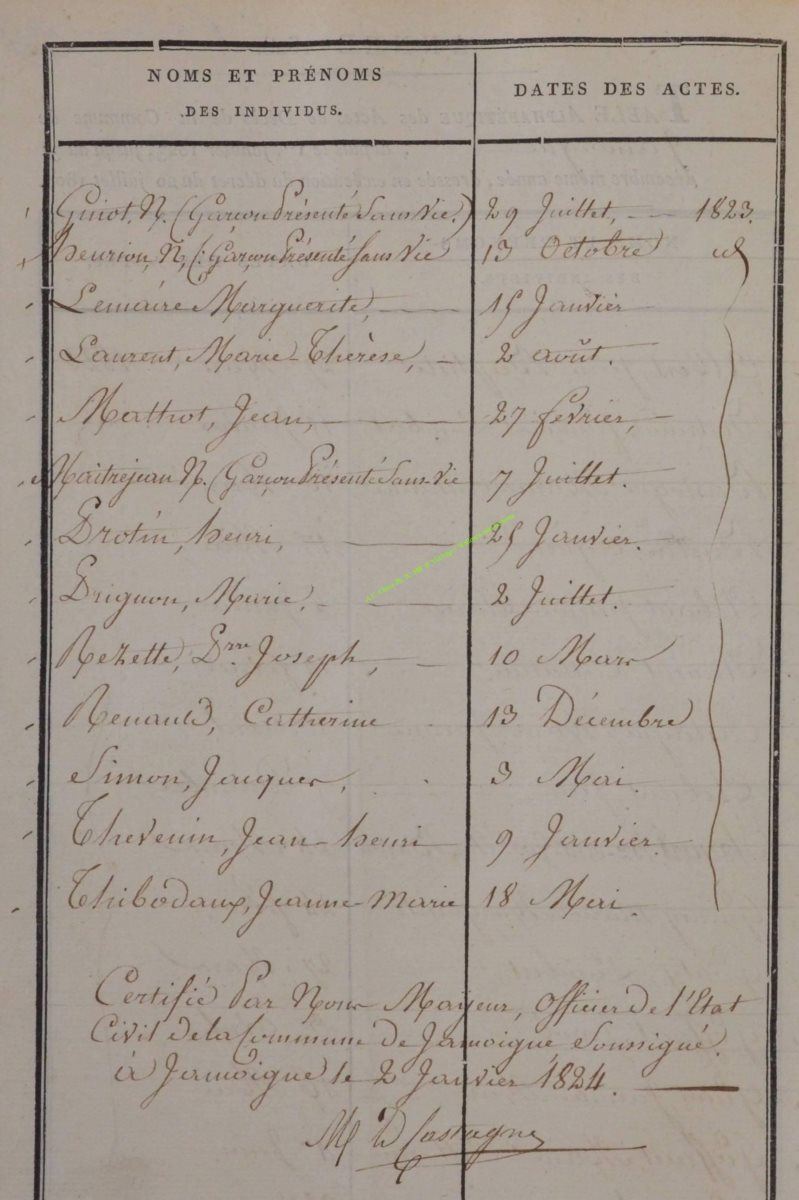 NOMS ET PRÉNOMS
DES INDIVIDUS.
DATES DES ACTES.
Guiot, N. (Garçon Présenté Sans Vie.) 29 Juillet, — 1823.
henrion, N, (: Garçon Présenté Sans Vie 13 Octobre id
Lemaire Marguerite, — 15 Janvier
Laurent, Marie-Thérèse, — 2 août.
Mathot, Jean, — 27 fevrier, —
Maitrejean N. (Garçon Présenté Sans Vie 7 Juillet.
Protin, henri, — 25 Janvier.
Prignon, Marie, — 2 Juillet.
Rezette, Prre Joseph, — 10 Mars
Renauld, Catherine 13 Décembre
Simon, Jacques, 3 Mai.
Thevenin, Jean-henri 9 Janvier.
Thibodaux, Jeanne-Marie 18 Mai.
Certifié Par Nous Mayeur, Officier De l'Etat
Civil de la Commune de Jamoigne Soussigné.
à Jamoigne le 2 Janvier 1824. —